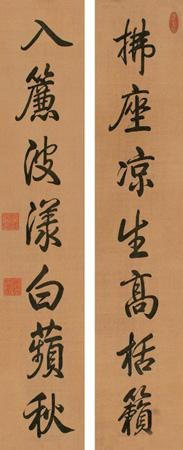 拂座凉生高栝籁
入簾波漾白蘋秋